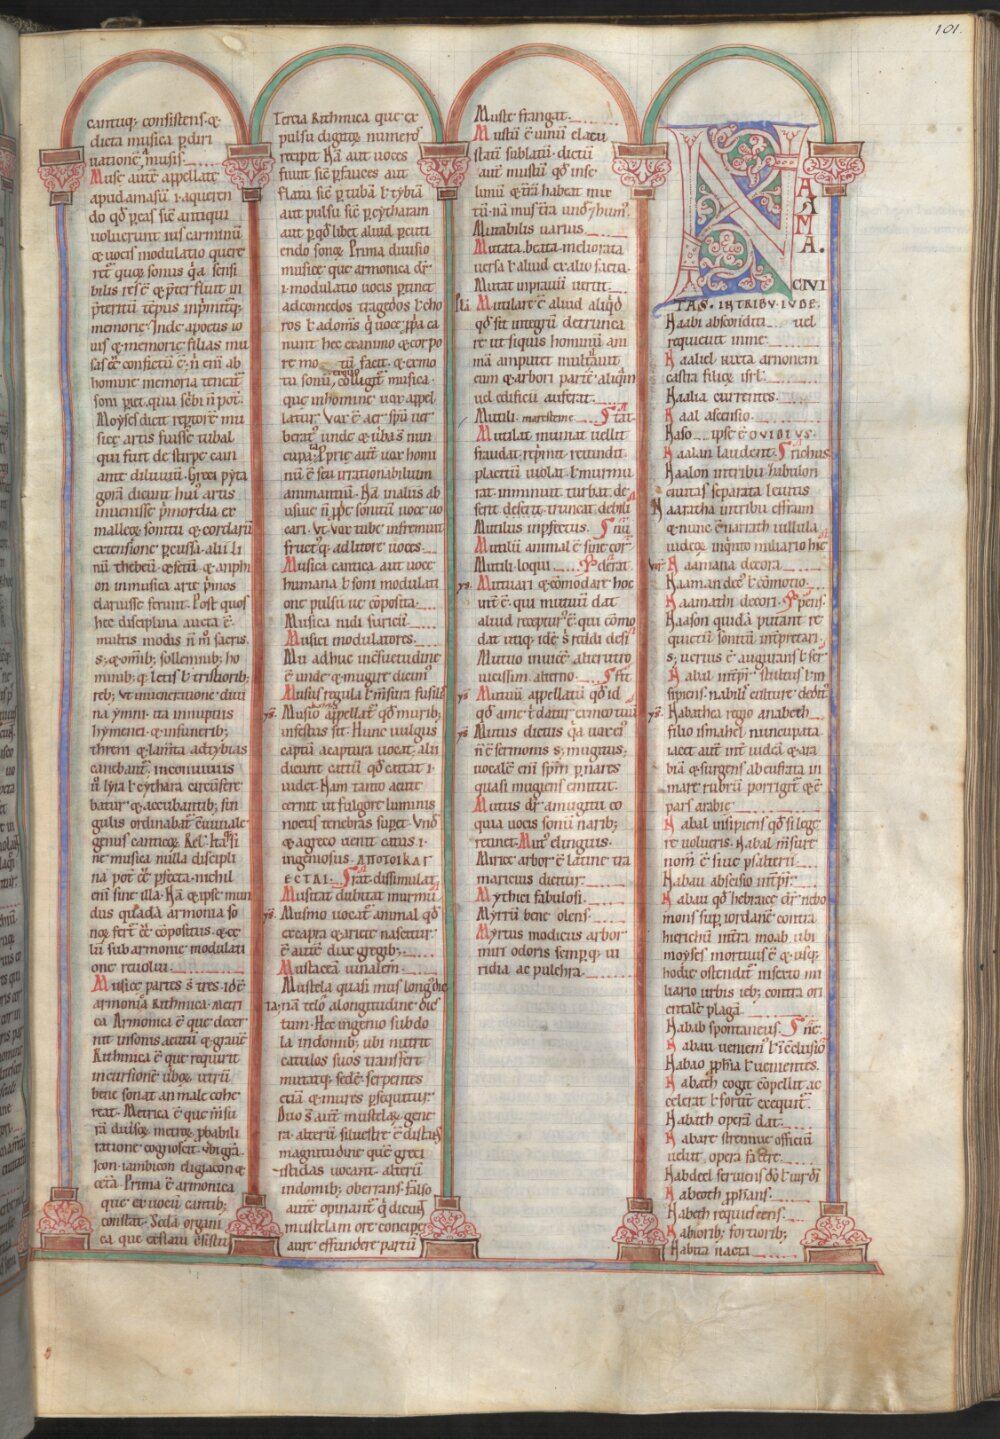 101.
cantuq; consistens. &
dicta musica p diri
uatione a musis.
Muse aute appellate
apud amasum .i. a queren
do qđ p eas sic antiqui
uoluerunt uis carminū
& uocis modulatio quere
ret quoq; sonus qa sensi
bilis res ē & preter fluit in
preteritū tēpus inprimitq;
memorie. Inde apoetis io
uis & memorie filias mu
sas eē confictū ē. ni eni ab
homine memoria teneat
soni pereunt quia scribi ñ pot.
Moyses dicit reptorē mu
sice artis fuisse tubal
qui fuit de stirpe cain
ante diluuiū. Greci pyta
gorā dicunt hui artis
inuenisse primordia ex
malleoq; sonitu & cordarū
extensione pcussa. alii li
nū thebeū & zetū & amphi
on in musica arte primos
claruisse ferunt. Post quos
hec disciplina aucta ē.
multis modis ñ m sacris.
s; & omib; sollemnib; ho
minib; q; letis l tristiorib;
reb; ut in ueneratione diui
na ymni. ita innuptiis
hymenei. & in funerib;
threni & lamta ad tybias
canebant. in conuiuiis
ñ lyra l cythara circūfere
batur & accubantib; sin
gulis ordinabat cuuiuale
genus canticoq;
ne musica nulla discipli
na pot eē pfecta. nichil
eni sine illa. Nā & ipse mun
dus quadā armonia so
noq; fert eē cōpositus & ce
lū sub armonie modulati
one reuolui
Musice partes s tres. id ē
armonia Rithmica. Metri
ca Armonica ē que decer
nit in sonis acutū & grauē
Rithmica ē que requirit
incursionē uboq; utrū
bene sonat an male cohe
reat. Metrica ē que msu
rā diuisoq; metroq; pbabili
ratione cognoscit. ubi ga
icon. iambicon elegiacon &
ceta. Prima ē armonica
que ex uocū cantib;
constat. Scda organi
ca que ex flatu cōsistit
Tercia Rithmica que ex
pulsu digitoq; numeros
recipit Nā aut uoces
fiunt sic p fauces aut
flatu sic p tubā l tybiā
aut pulsu sic p cytharam
aut p qđ libet aliud pcuti
endo sonoq; Prima diuisio
musice que armonica dr
.i. modulatio uocis ptinet
ad comedos tragedos l cho
ros l adomis q uoce ppa ca
nunt hec ex animo & corpo
re mo tū facit. & ex mo
tu sonū ex quo colligit musica.
que in homine uox appel
latur. Vox ē aer spu uer
beratꝰ unde & uba s nun
cupa ta. Prie aut uox homi
nū ē seu irrationabilium
animantiū. Nā in aliis ab
usiue ñ pprie sonitū uoce uo
cari. Vt uox tube infremuit
fractesq; ad litore uoces.
Musica cantica aut uoce
humana l soni modulati
one pulsu ue cōposita.
Musica nidi suricū
Musici modulatores.
Mu adhuc in cōsuetudine
ē unde & mugire dicim
Musus regula l mensura fusilis
Musio appellat qđ murib;
infestus sit. Hunc uulgus
captū a captura uocat. alii
dicunt cattū qđ cattat .i.
uidet. Nam tanto acute
cernit ut fulgore luminis
noctis tenebras superet. Vnđ
& a greco uenit catus .i.
ingeniosus. ΑΠΟΤΟΙΚΑΙΕ
ΕCΤΑΙ. strat. dissimulat.
Musitat dubitat murmu
Musmo uocat animal qđ
ex capra & ariete nascitur.
ē aute dux gregib;
Mustacea uinalem.
Mustela quasi mus longꝰ die
ta; nā telo a longitudine dic
tum. Hec ingenio subdo
la in domib; ubi nutrit
catulos suos transfert
mutatq; sedē. serpentes
etiā & mures psequitur.
Duo s aut mustelaq; gene
ra. alterū siluestre ē distans
magnitudine que greci
istidas uocant. alterū
in domib; oberrans. falso
aute opinant q dicunt
mustelam ore concipe
aure effundere partū
Muste frangat.
Mustū ē uinū e lacu
statū sublatū. dictū
aut mustū qđ in se
limū & trā habeat mix
tū. nā mus tra unđ & hum.
Mutabilis uarius
Mutata. beata. meliorata
uersa l aliud ex alio facta.
Mutat inprauū uertit.
Mutilare ē aliud aliqđ
qđ sit integrū detrunca
re ut siquis hominū ani
mā amputet multauit
eum & arbori partē aliqm
ud edificii auferat.
Mutili. marestene strat.
Mutilat muinat uellit
fraudat reprimit retundit
placitū uiolat l murmu
rat imminuit turbat de
serit desecit. truncat debilitat
Mutilus inpfectus. s nū
Mutilū animal ē sine cor
Mutili. loqui pderat.
Mutuari & cōmodare hoc
int ē. qui mutuū dat
aliud recepturꝰ ē. qui cōmo
dat utiq; idē s reddi desi
Mutuo inuicē alterutro
uicissim. alterno. s fit
Mutuū appellatū qđ id
qđ a me t datur ex meo tuū
Mutus dictus qa uox ei
ñ ē sermonis s; mugitus.
uocalē eni spm p nares
quasi mugiens emittit.
Mutus dr a mugitu eo
quia uocis sonū narib;
retinet. Mut elinguis.
Mirice arbor ē latine tra
maricius dicitur.
Mythici fabulosi.
Myrrū bene olens.
Myrtus modicus arbor
miri odoris sempq; ui
ridia ac pulchra.
NAAMA.
CIVI
TAS. IN TRIBV. IVDE.
Naabi absconditi uel
requieuit in me.
Naaliel iuxta arnonem
castra filioq; isrl.
Naalia currentes.
Naal ascensio.
Naso ipse ē OVIDIVS.
Naalan laudent. s richus
Naalon in tribu zabulon
ciuitas separata leuitis
Naaratha in tribu effraim
& nunc ē naorath uillula
iudeoq; in qnto miliario hie
Naamana decora
Naaman decꝰ l cōmotio.
Naamathi decori. ppens.
Naason quidā putant re
quietū sonitū intpretari.
s; uerius ē augurans l ser
Nabal intpr stultus l in
sipiens. nabilis culture debitꝰ
Nabathea regio a nabeth
filio ismahel nuncupata
iacet aut int iudeā & ara
biā & surgens ab eufrata in
mare rubrū porrigit & ē
pars arabie
Nabal insipiens qđ si lege
re uolueris. Nabal msure
nom ē siue psalterii.
Nabau abscisio intpr.
Nabau qđ hebraice dr nebo
mons sup iordanē contra
hierichū intra moab. ubi
moyses mortuus ē & usq;
hodie ostendit in sexto mi
liario urbis ieb; contra ori
entale plagā.
Nabab spontaneus. s ne.
Nabau ueniem l i celusiō
Nabao pphia l uenientes.
Nabath cogit cōpellit. ac
celerat l forum exequit.
Nabath operā dat.
Nabare strennue officiū
uelut opera facere.
Nabdeel seruiens do l uir di
Nabeoth pphans.
Nabeth requiescens.
Nabiorib; fortiorib;
Nabita nacta